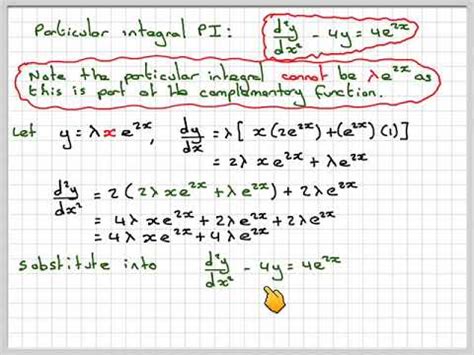 Particular integral PI: d²y/dx² - 4y = 4e²ˣ
Note the particular integral cannot be λe²ˣ as
this is part of the complementary function.
Let y = λxe²ˣ, dy/dx = λ[x(2e²ˣ)+(e²ˣ)(1)]
= 2λxe²ˣ + λe²ˣ
d²y/dx² = 2(2λxe²ˣ + λe²ˣ) + 2λe²ˣ
= 4λxe²ˣ + 2λe²ˣ + 2λe²ˣ
= 4λxe²ˣ + 4λe²ˣ
Substitute into d²y/dx² - 4y = 4e²ˣ